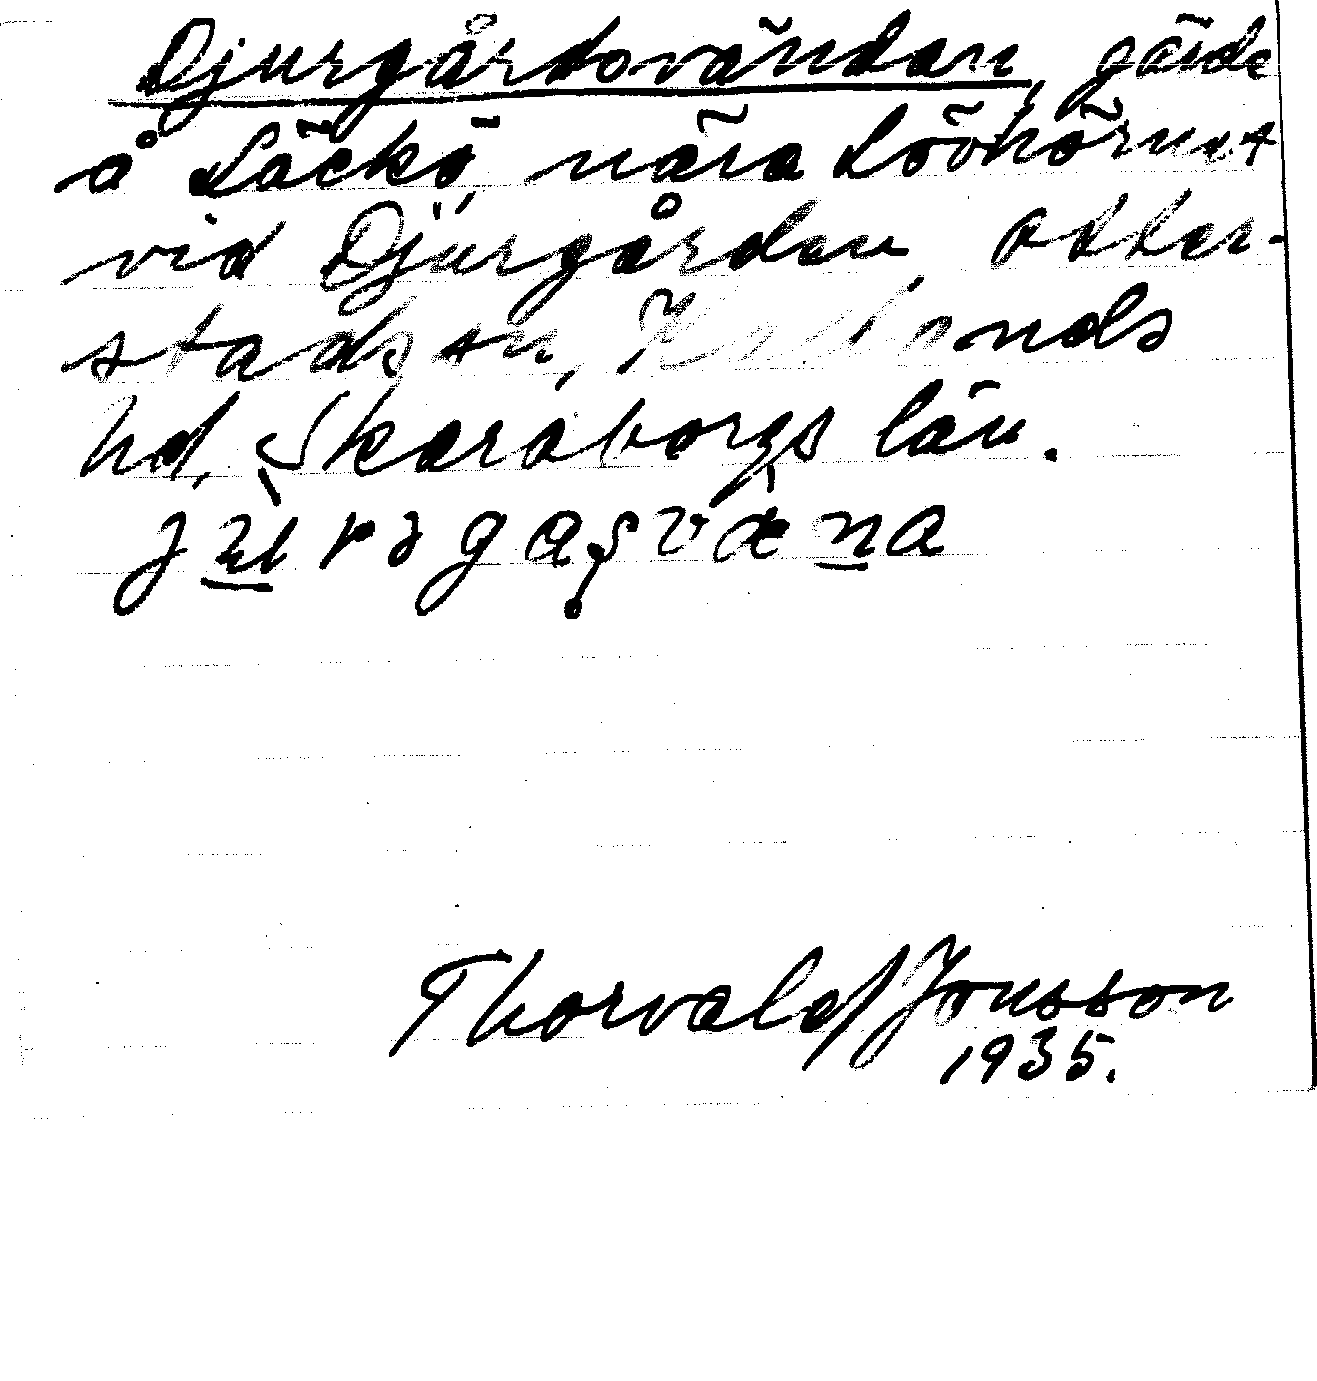 Djurgårdsvändan, gärde
å Läckö, nära Lövhörnet
vid Djurgården, Otter-
stads sn, Kållands
hd, Skaraborgs län.
Thorvald Jonsson
1935.